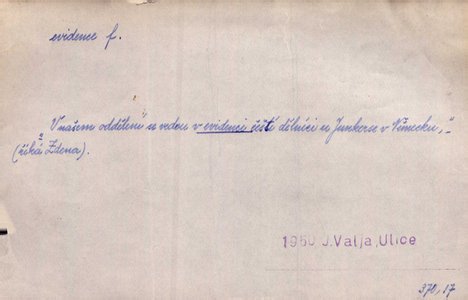 evidence f.
„V našem oddělení se vedou v evidenci čeští dělníci u Junkerse v Německu,“
(říká Zdena).
1950 J.Valja,Ulice
370,17